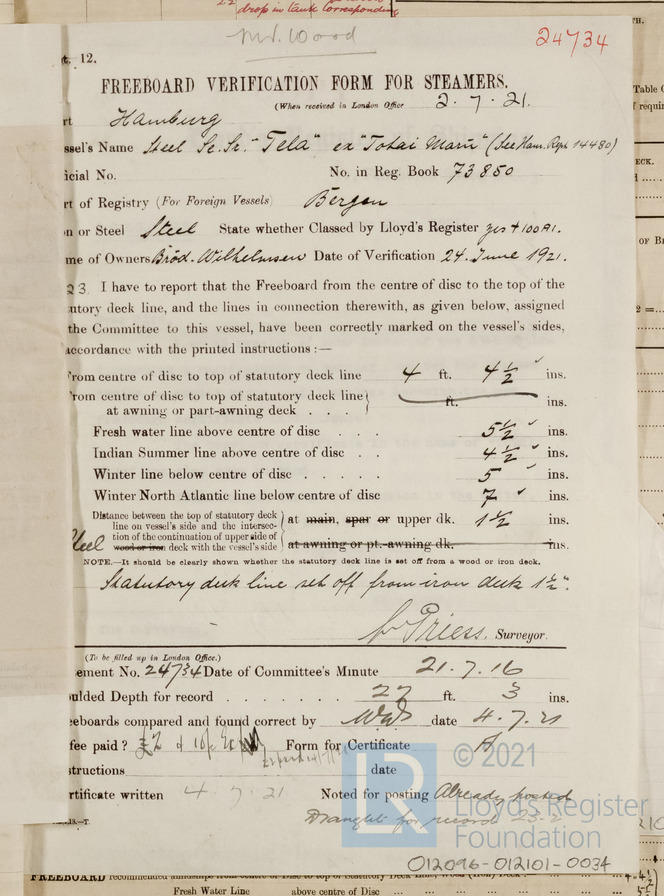 drop in tank corresponding
Mr. Wood
24734
t. 12.
FREEBOARD VERIFICATION FORM FOR STEAMERS.
(When received in London Office 2.7.21.
rt Hamburg
ssel's Name Steel Sc. Sr. "Tela" ex "Totai Maru" (See Ham. Rept 14480)
icial No. No. in Reg. Book 73850
rt of Registry (For Foreign Vessels) Bergen
n or Steel Steel State whether Classed by Lloyd's Register yes +100A1.
me of Owners Bröd. Wilhelmsen Date of Verification 24. June 1921.
23 I have to report that the Freeboard from the centre of disc to the top of the
utory deck line, and the lines in connection therewith, as given below, assigned
the Committee to this vessel, have been correctly marked on the vessel's sides,
accordance with the printed instructions :—
From centre of disc to top of statutory deck line 4 ft. 4½ ins.
From centre of disc to top of statutory deck line
at awning or part-awning deck . . . ft. ins.
Fresh water line above centre of disc . . . 5½ ins.
Indian Summer line above centre of disc . . 4½ ins.
Winter line below centre of disc . . . . . 5 ins.
Winter North Atlantic line below centre of disc 7 ins.
Distance between the top of statutory deck
line on vessel's side and the intersec- at main, spar or upper dk. 1½ ins.
tion of the continuation of upper side of
Steel wood or iron deck with the vessel's side at awning or pt.-awning dk. ins.
NOTE.—It should be clearly shown whether the statutory deck line is set off from a wood or iron deck.
Statutory deck line set off from iron deck 1½".
Priess. Surveyor.
(To be filled up in London Office.)
ement No. 24734 Date of Committee's Minute 21.7.16
ulded Depth for record . . . . . . . 27 ft. 3 ins.
eeboards compared and found correct by date 4.7.21
fee paid ? £2 Form for Certificate A
structions date
rtificate written 4.7.21 Noted for posting Already posted
Draught for record 23.2
© 2021
LR
Lloyd's Register
Foundation
012096-012101-0034
FREEBOARD recommended
Fresh Water Line above centre of Disc